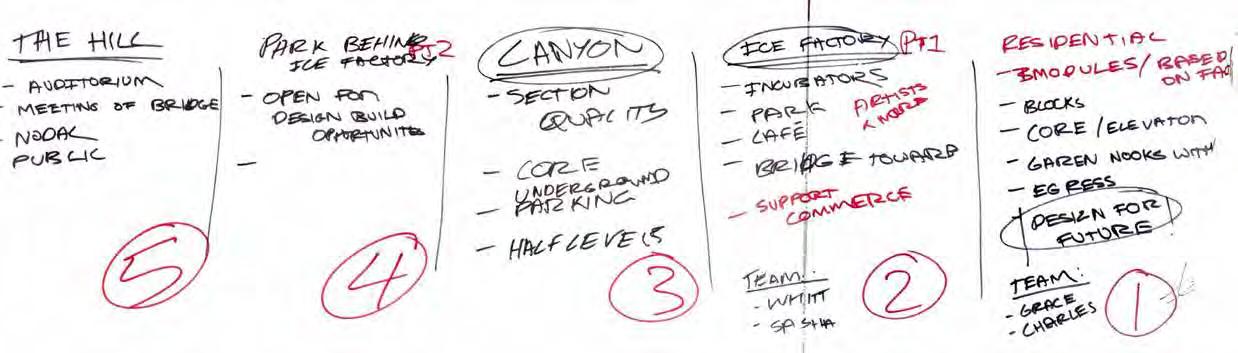 THE HILL
- AUDITORIUM
- MEETING OF BRIDGE
- NODAL
PUBLIC
5
PARK BEHIND PT2
ICE FACTORY
- OPEN FOR
DESIGN BUILD
OPPORTUNITE
-
4
CANYON
- SECTION
QUALITY
- CORE
UNDERGROUND
- PARKING
- HALF LEVELS
3
ICE FACTORY PT1
- INCUBATORS
- PARK
ARTISTS
- CAFÉ
- BRIDGE TOWARD
- SUPPORT
COMMERCE
TEAM:
- WHITT
- SASHA
2
RESIDENTIAL
- 3MODULES/BASED
ON FAC
- BLOCKS
- CORE/ELEVATOR
- GAREN NOOKS WITH
- EGRESS
DESIGN FOR
FUTURE
TEAM:
- GRACE
- CHARLES
1